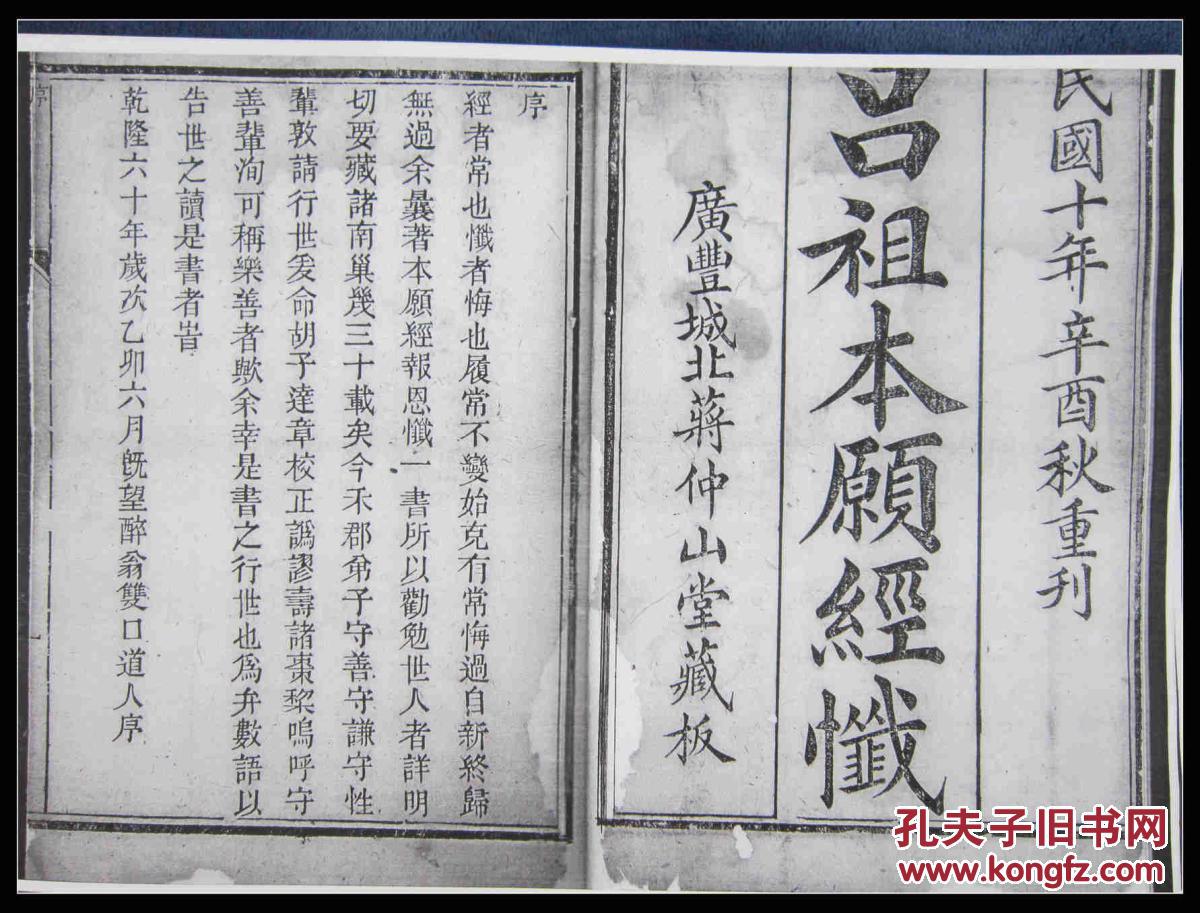 民國十年辛酉秋重刊
呂祖本願經懺
廣豐城北蔣仲山堂藏板
序
經者常也懺者悔也履常不變始克有常悔過自新終歸
無過余曩著本願經報恩懺一書所以勸勉世人者詳明
切要藏諸南巢幾三十載矣今禾郡弟子守善守謙守性
輩敦請行世爰命胡子達章校正譌謬壽諸棗棃嗚呼守
善輩洵可稱樂善者歟余幸是書之行世也爲弁數語以
告世之讀是書者旹
乾隆六十年歲次乙卯六月旣望醉翁雙口道人序
序
孔夫子旧书网
www.kongfz.com